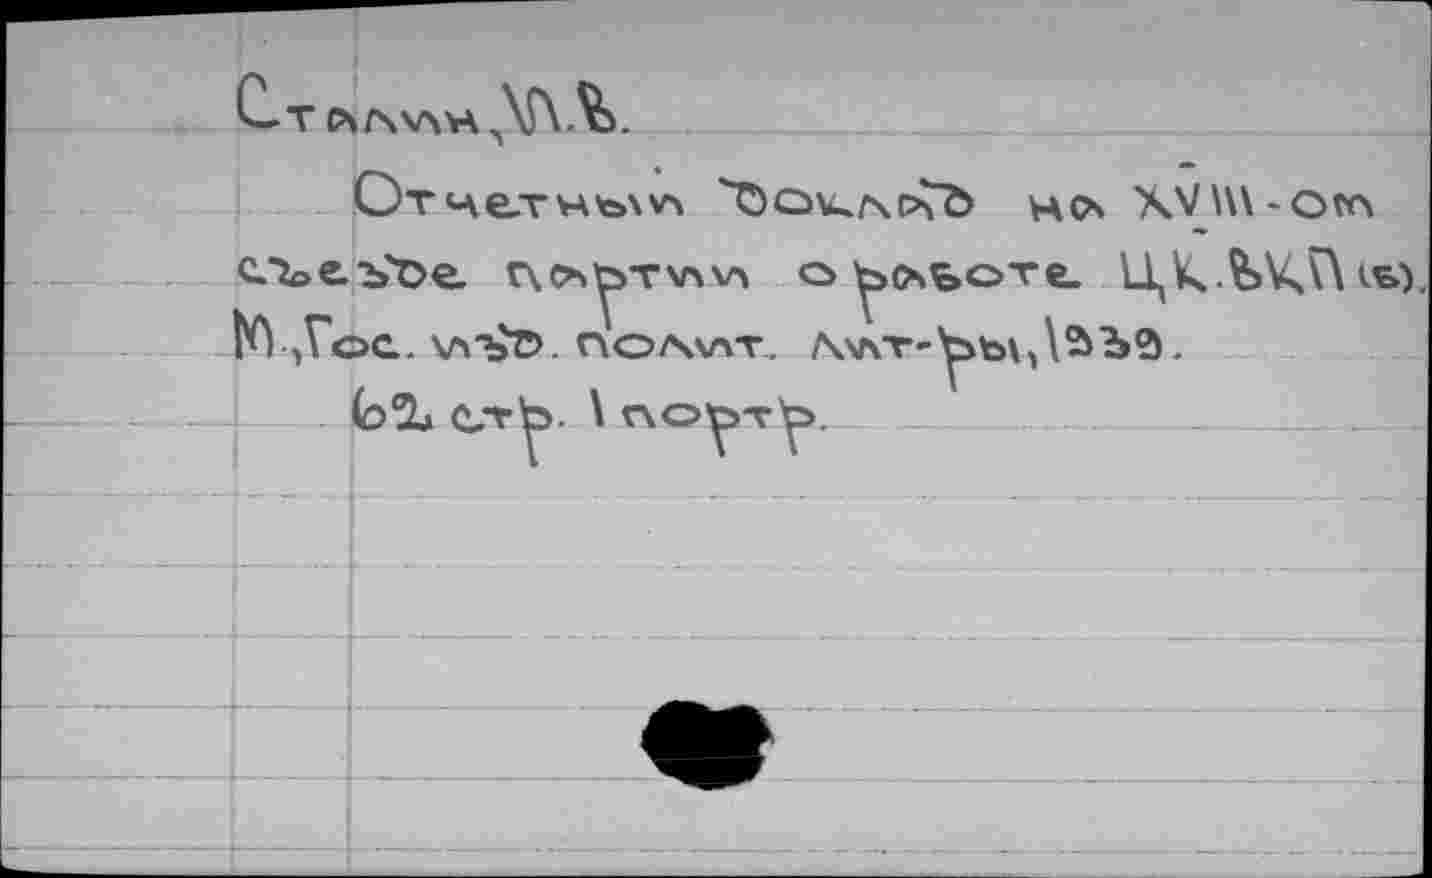 Сталин, И.В.
Отчетный доклад на XVIII-ом
съезде партии о работе ЦК.ВКП(б).
М.,Гос. изд. полит. лит-ры,1939.
62 стр. 1 портр.